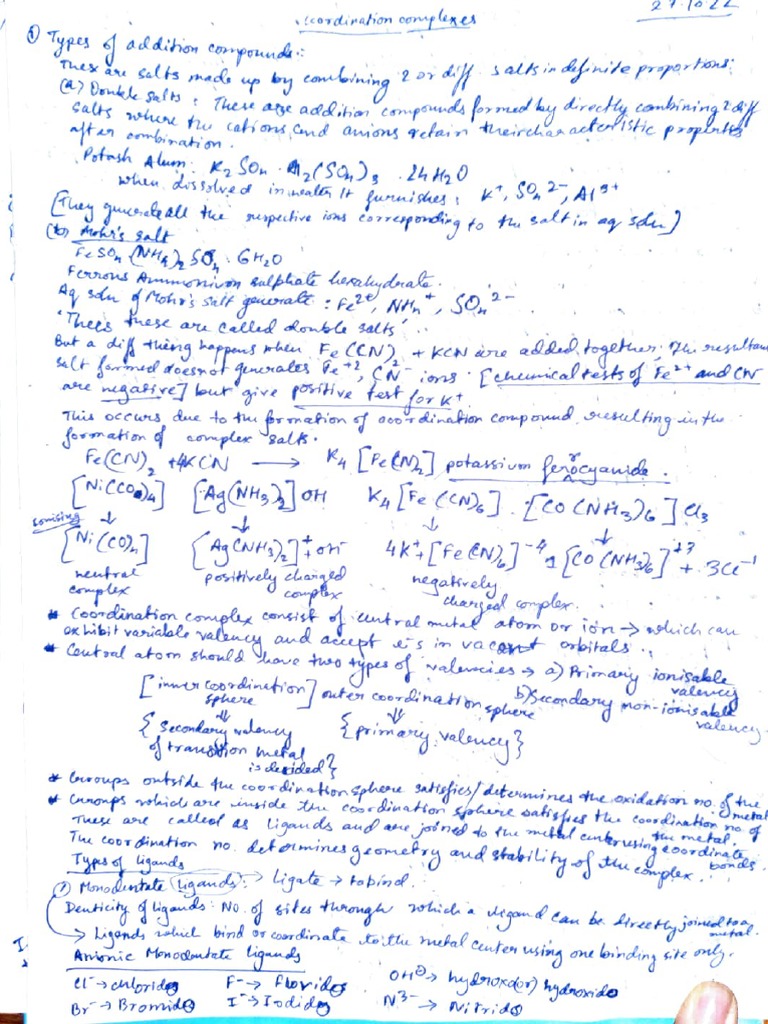 27.10.22
Coordination complexes
① Types of addition compounds:
These are salts made up by combining 2 or diff salts in definite proportions:
(a) Double salts: These are addition compounds formed by directly combining 2 diff
salts where the cations and anions retain their characteristic properties
after combination.
Potash Alum: K2SO4 · Al2(SO4)3 · 24H2O
when dissolved in water It furnishes: K+, SO4 2-, Al3+
[They generate all the respective ions corresponding to the salt in aq soln]
(b) Mohr's salt
FeSO4 (NH4)2 SO4 · 6H2O
Ferrous Ammonium sulphate hexahydrate.
Aq soln of Mohr's salt generate: Fe2+, NH4+, SO4 2-
'Thees these are called double salts'
But a diff thing happens when Fe(CN)2 + KCN are added together, The resultant
salt formed does not generates Fe+2, CN- ions. [chemical tests of Fe2+ and CN
are negative] but give positive test for K+
This occurs due to the formation of coordination compound resulting in the
formation of complex salts.
Fe(CN)2 + 4KCN → K4[Fe(CN)6] potassium ferrocyanide.
[Ni(CO)4] [Ag(NH3)2]OH K4[Fe(CN)6] · [CO(NH3)6]Cl3
ionising ↓ ↓ ↓ ↓
[Ni(CO)4] [Ag(NH3)2]+ + OH- 4K+ + [Fe(CN)6]-4 [CO(NH3)6]+3 + 3Cl-1
neutral complex positively charged complex negatively charged complex.
* Coordination complex consist of central metal atom or ion → which can
exhibit variable valency and accept e-s in vacant orbitals..
* Central atom should have two types of valencies → a) Primary ionisable valency
b) Secondary non-ionisable valency.
[inner coordination sphere] outer coordination sphere
⇓ ⇓
{Secondary valency of transition metal is decided} {primary valency}
* Groups outside the coordination sphere satisfies/determines the oxidation no. of the metal
* Groups which are inside the coordination sphere satisfies the coordination no of the metal.
These are called as ligands and are joined to the metal center using coordinate bonds.
The coordination no. determines geometry and stability of the complex.
Types of ligands
① Monodentate ligands: → Ligate → to bind.
Denticity of ligands: No. of sites through which a ligand can be directly joined to a metal.
→ Ligands which bind or coordinate to the metal center using one binding site only.
Anionic Monodentate ligands
Cl- → chlorido F- → Florido OH⊖ → hydroxo(or) hydroxido
Br- → Bromido I- → Iodido N3- → Nitrido